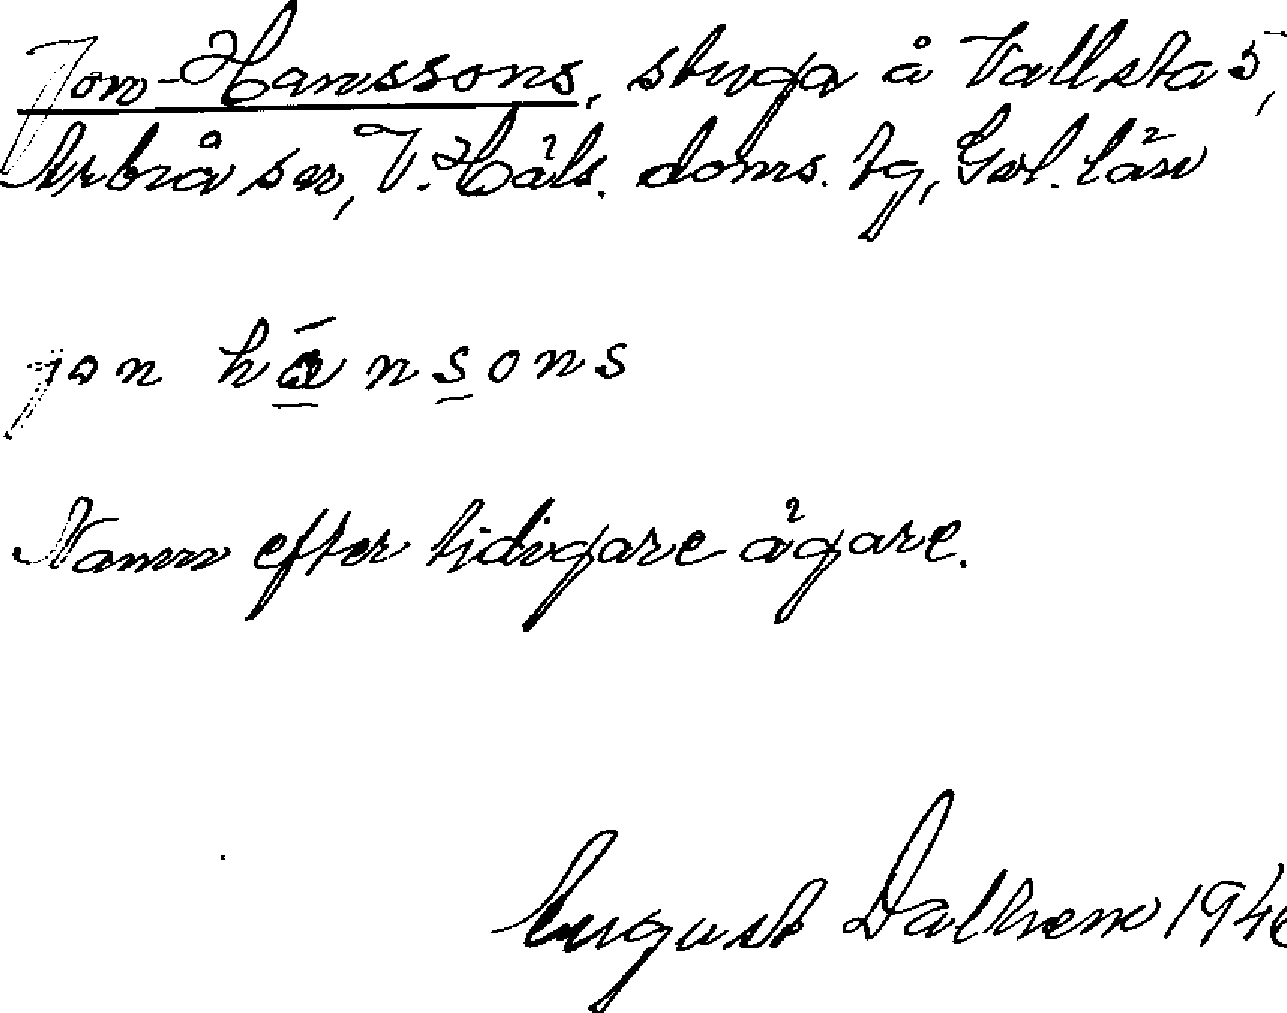 Jon-Hanssons, stuga å Vallsta 5,
Arbrå sn, V. Häls. doms. tg, Gvl. län
jon hánsons
Namn efter tidigare ägare.
August Dalhem